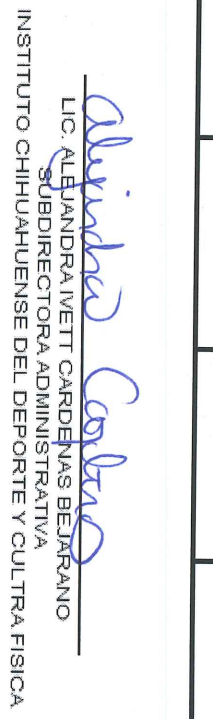 Alejandra Cardenas
LIC. ALEJANDRA IVETT CARDENAS BEJARANO
SUBDIRECTORA ADMINISTRATIVA
INSTITUTO CHIHUAHUENSE DEL DEPORTE Y CULTRA FISICA